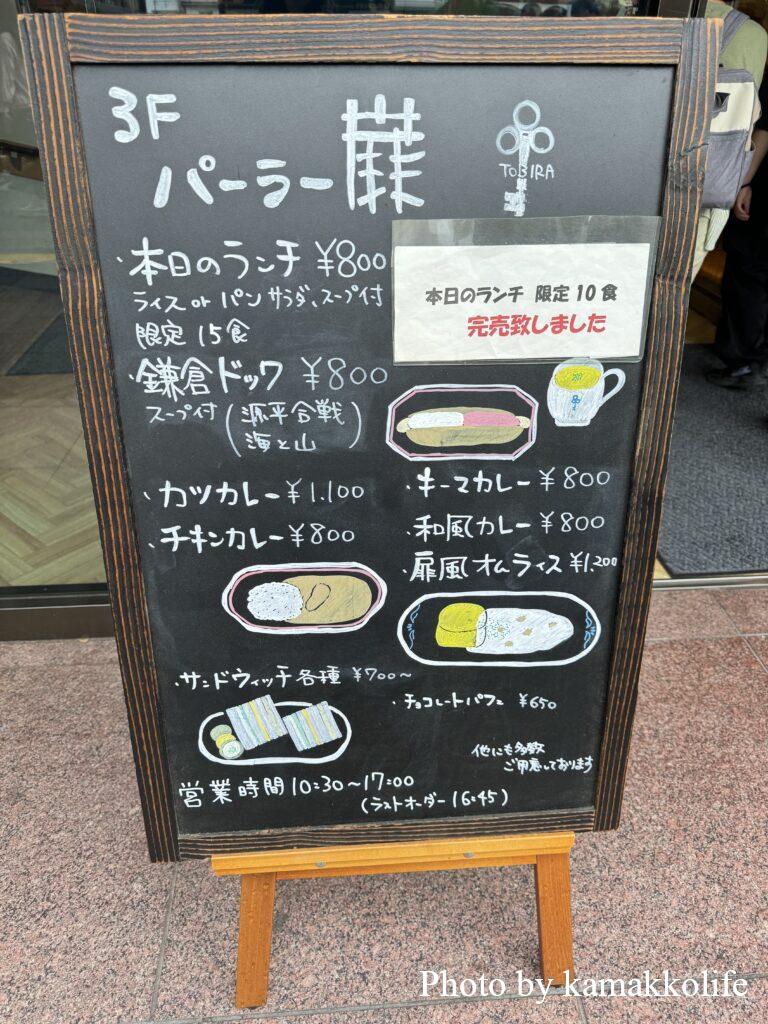 3F
パーラー扉
TOBIRA
・本日のランチ ¥800
ライス or パン サラダ、スープ付
限定 15食
本日のランチ 限定 10 食
完売致しました
・鎌倉ドック ¥800
スープ付 (源平合戦
海と山)
・カツカレー ¥1.100
・チキンカレー ¥800
・キーマカレー ¥800
・和風カレー ¥800
・扉風オムライス ¥1.200
・サンドウィッチ各種 ¥700〜
・チョコレートパフェ ¥650
他にも多数
ご用意しております
営業時間 10:30〜17:00
(ラストオーダー 16:45)
Photo by kamakkolife